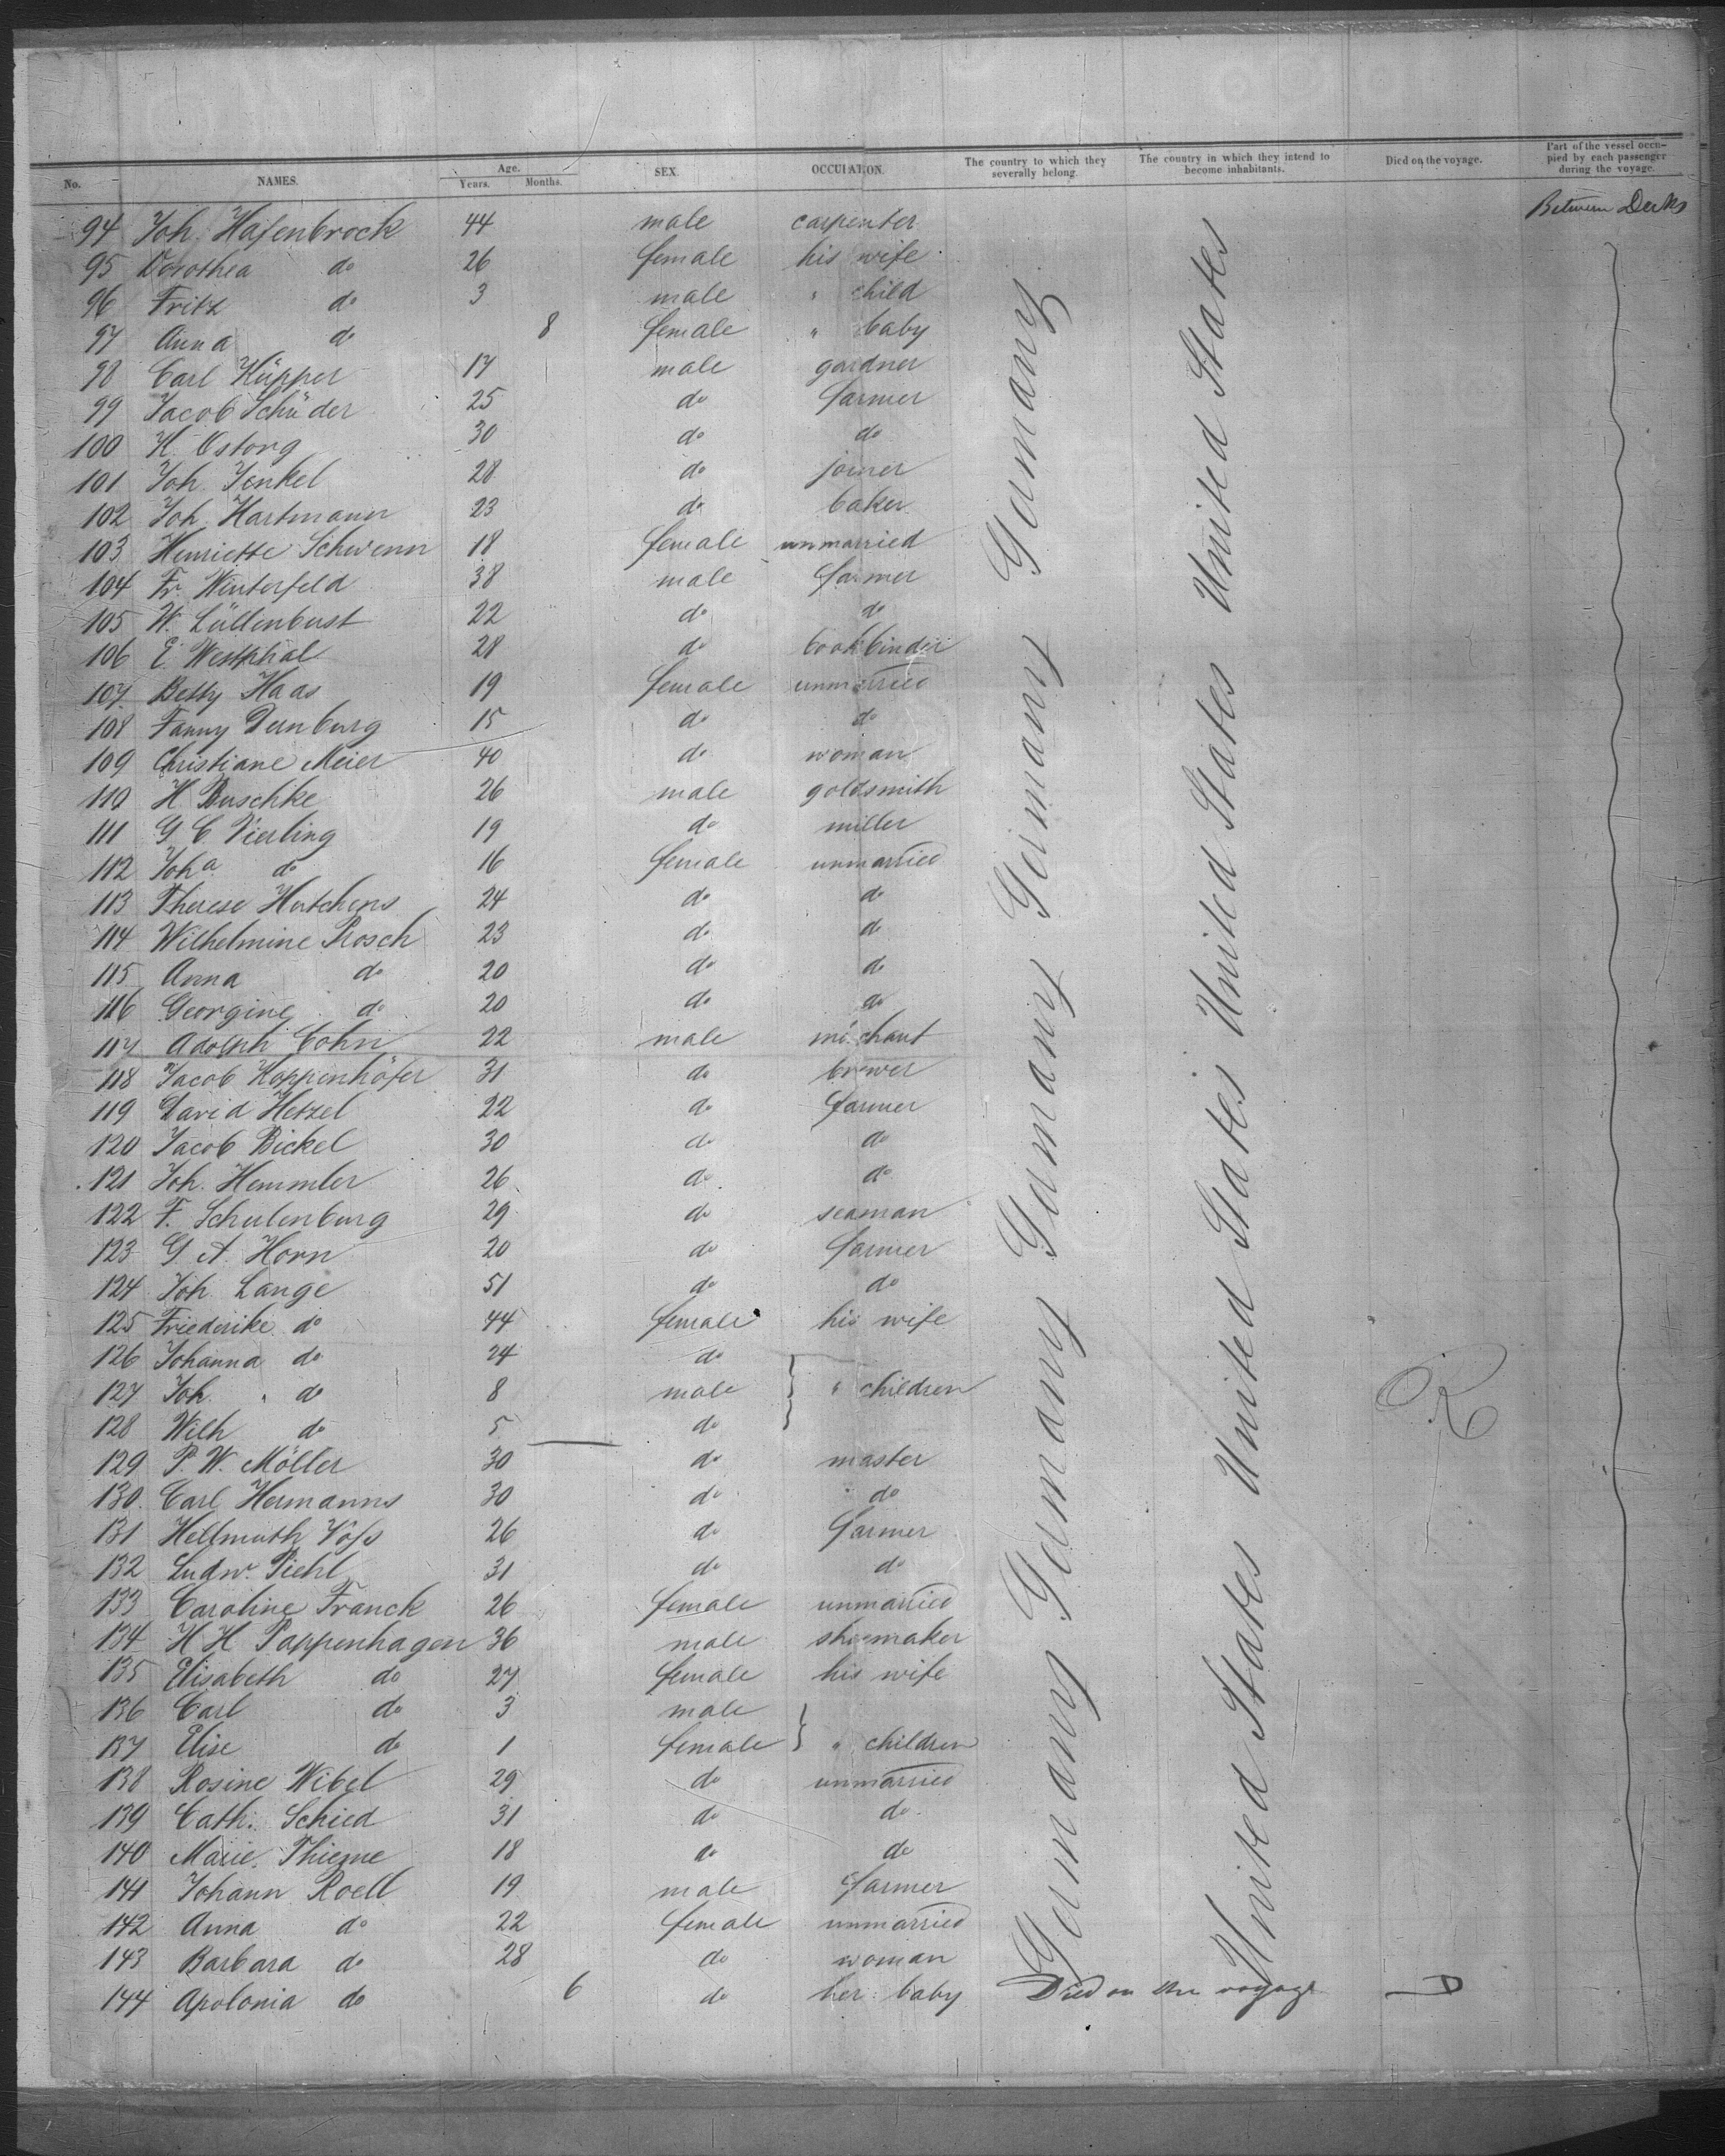 No. NAMES. Age. Years. Months. SEX. OCCUPATION. The country to which they severally belong. The country in which they intend to become inhabitants. Died on the voyage. Part of the vessel occupied by each passenger during the voyage.
94 Joh. Hafenbrock 44 male carpenter Between Decks
95 Dorothea do 26 female his wife
96 Fritz do 3 male " child
97 Anna do 8 female " baby
98 Carl Küpper 17 male gardner
99 Jacob Schüder 25 do farmer
100 H. Ostorg 30 do do
101 Joh. Jenkel 28 do joiner
102 Joh. Hartmann 23 do baker
103 Henriette Schwenn 18 female unmarried
104 Fr. Winterfeld 38 male farmer
105 W. Lüllenbust 22 do do
106 E. Westphal 28 do bookbinder
107 Betty Haas 19 female unmarried
108 Fanny Dernburg 15 do do
109 Christiane Meier 40 do woman
110 H Buschke 26 male goldsmith
111 G C Vierling 19 do miller
112 Joha do 16 female unmarried
113 Therese Hutchens 24 do do
114 Wilhelmine Rosch 23 do do
115 Anna do 20 do do
116 Georgine do 20 do do
117 Adolph Cohn 22 male merchant
118 Jacob Koppenhöfer 31 do brewer
119 David Hetzel 22 do farmer
120 Jacob Bickel 30 do do
121 Joh. Hemmler 26 do do
122 F. Schulenburg 29 do seaman
123 G A. Horn 20 do farmer
124 Joh. Lange 51 do do
125 Friederike do 44 female his wife
126 Johanna do 24 do
127 Joh. do 8 male " children
128 Wilh do 5 do
129 P. W. Möller 30 do master
130 Carl Hermanns 30 do do
131 Hellmuth Voss 26 do farmer
132 Ludw. Piehl 31 do do
133 Caroline Franck 26 female unmarried
134 H H Pappenhagen 36 male shoemaker
135 Elisabeth do 27 female his wife
136 Carl do 3 male
137 Elise do 1 female " children
138 Rosine Wibel 29 do unmarried
139 Cath. Schied 31 do do
140 Marie Thieme 18 do do
141 Johann Roell 19 male farmer
142 Anna do 22 female unmarried
143 Barbara do 28 do woman
144 Apolonia do 6 do her baby Died on the voyage D
Germany Germany Germany Germany Germany Germany
United States United States United States United States United States
R